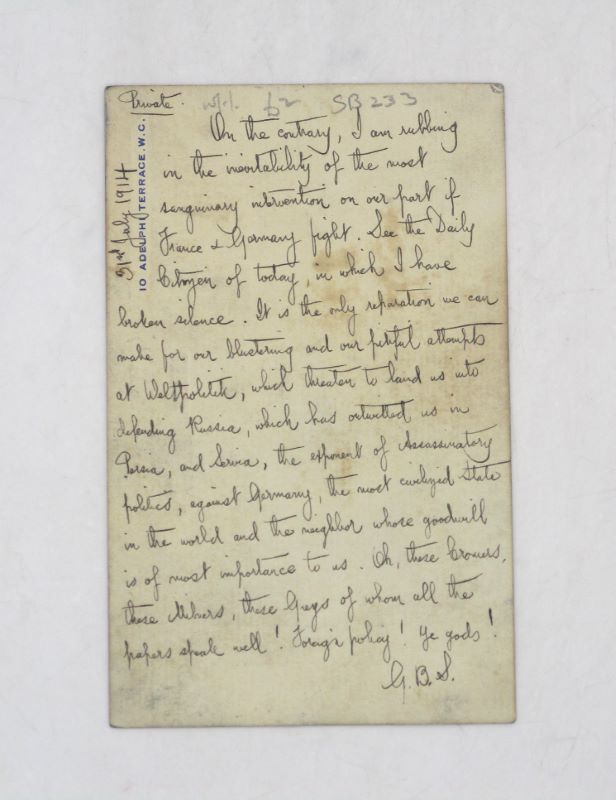 Private.
£2 SB 233
31st July 1914
10 ADELPHI TERRACE. W.C.
On the contrary, I am rubbing
in the inevitability of the most
sanguinary intervention on our part if
France & Germany fight. See the Daily
Citizen of today, in which I have
broken silence. It is the only reparation we can
make for our blustering and our pitiful attempts
at Weltpolitik, which threaten to land us into
defending Russia, which has outwitted us in
Persia, and Servia, the exponent of Assassinatory
politics, against Germany, the most civilized State
in the world and the neighbor whose goodwill
is of most importance to us. Oh, these Cromers,
these Milners, these Greys of whom all the
papers speak well! Foreign policy! Ye gods!
G.B.S.